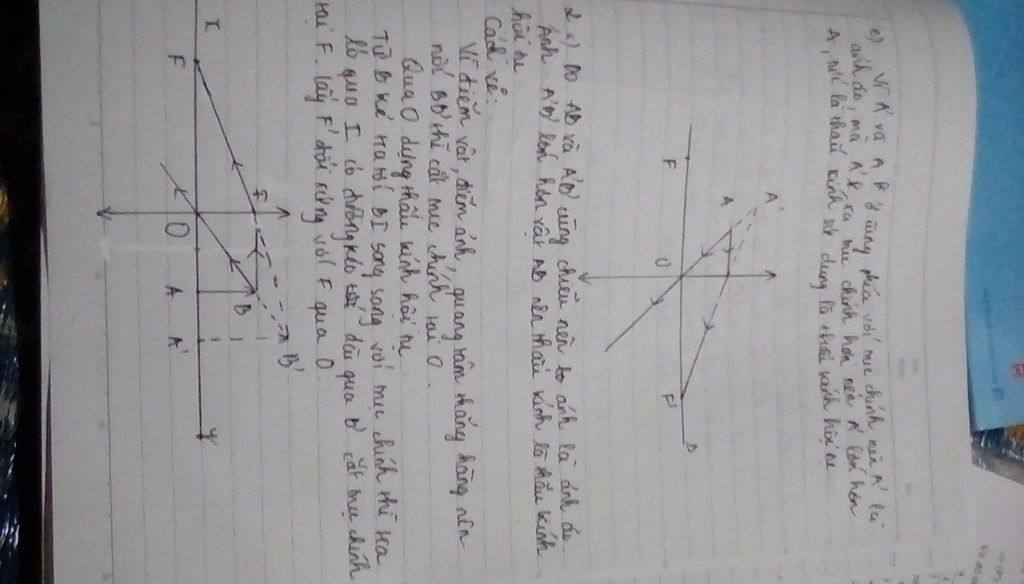 c) Vì A' và A ở cùng phía với trục chính nên A' là
ảnh ảo mà A' xa trục chính hơn nên A' lớn hơn
A, nên là thấu kính sử dụng là thấu kính hội tụ
A'
A
F
O
F'
2. a) Do AB và A'B' cùng chiều nên to ảnh là ảnh ảo.
Ảnh A'B' lớn hơn vật AB nên thấu kính là thấu kính
hội tụ.
Cách vẽ:
Vì điểm vật, điểm ảnh, quang tâm thẳng hàng nên
nối BB' thì cắt trục chính tại O.
Qua O dựng thấu kính hội tụ.
Từ B kẻ tia tới BI song song với trục chính thì tia
ló qua I có đường kéo dài qua B' cắt trục chính
tại F. Lấy F' đối xứng với F qua O.
x
F
O
A
B
A'
B'
y